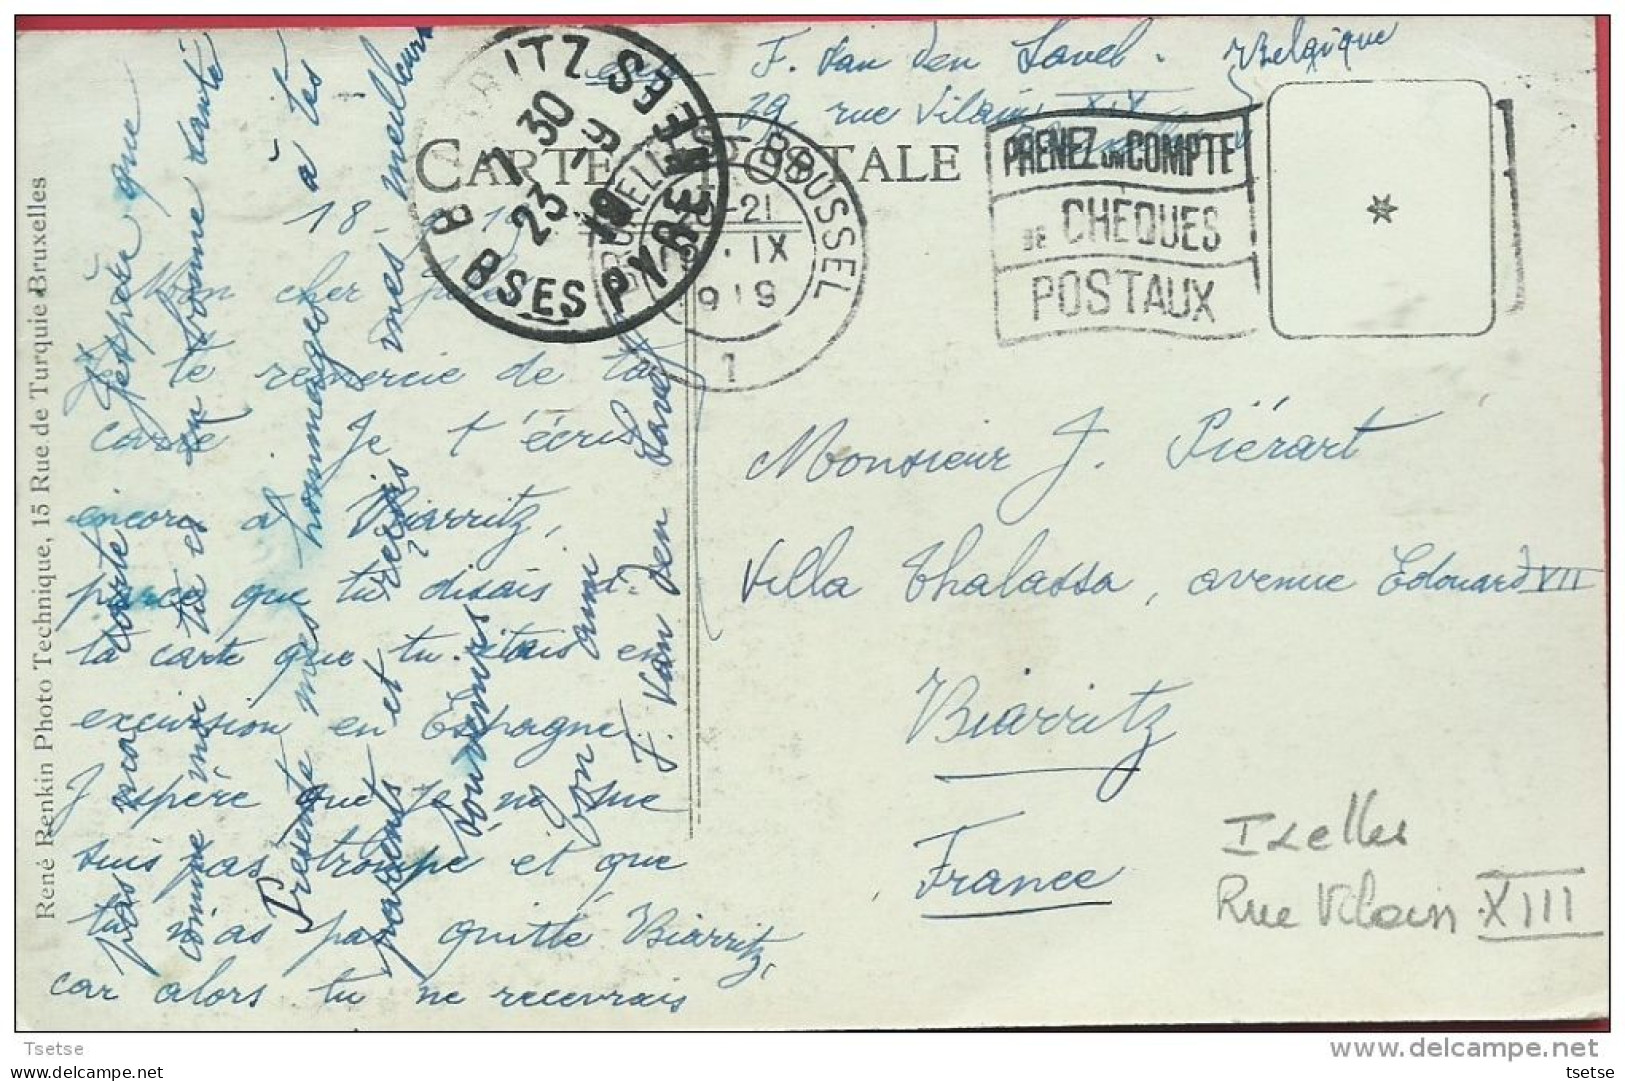 F. Van den Havel. Belgique
29 rue Vilain XIV
CARTE POSTALE
BIARRITZ BSES PYRENEES
7 30
23 - 9
19
BRUXELLES BRUSSEL
-21
IX
1919
1
PRENEZ UN COMPTE
DE CHEQUES
POSTAUX
18-9-19
Mon cher Jules
Je te remercie de ta
carte. Je t'écris
encore à Biarritz,
parce que tu disais d.
ta carte que tu étais en
excursion en Espagne.
J'espère que je ne me
suis pas trompé et que
tu n'as pas quitté Biarritz,
car alors tu ne recevrais
pas ma carte. J'espère que
comme moi tu es en bonne santé
Présente mes hommages à tes
parents et reçois mes meilleurs
souvenirs
Ton ami
F. Van den Havel
Monsieur J. Piérart
Villa Thalassa, avenue Edouard VII
Biarritz
France
Ixelles
Rue Vilain XIII
René Renkin Photo Technique, 15 Rue de Turquie Bruxelles
Tsetse
www.delcampe.net
tsetse